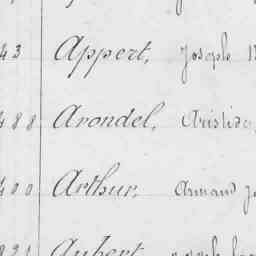 43 Appert, Joseph
488 Arondel, Aristide
400 Arthur, Armand
Aubert